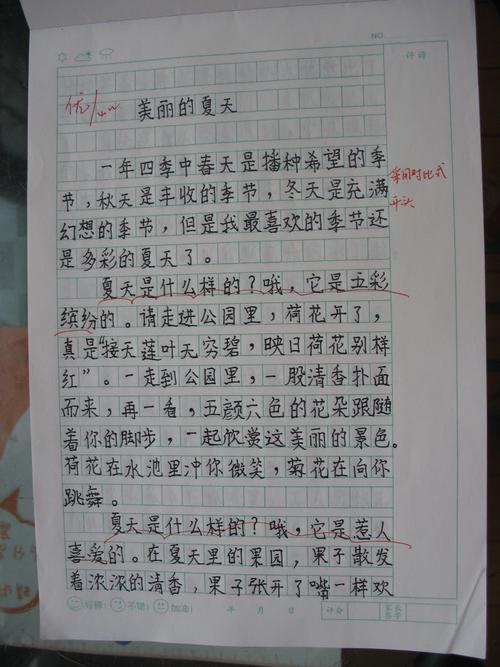 NO.
评语
优
美丽的夏天
一年四季中春天是播种希望的季
节，秋天是丰收的季节，冬天是充满
幻想的季节，但是我最喜欢的季节还
是多彩的夏天了。
采用对比式
开头
夏天是什么样的？哦，它是五彩
缤纷的。请走进公园里，荷花开了，
真是“接天莲叶无穷碧，映日荷花别样
红”。一走到公园里，一股清香扑面
而来，再一看，五颜六色的花朵跟随
着你的脚步，一起欣赏这美丽的景色。
荷花在水池里冲你微笑，菊花在向你
跳舞。
夏天是什么样的？哦，它是惹人
喜爱的。在夏天里的果园，果子散发
着浓浓的清香，果子张开了嘴一样欢
好棒！ 不错！ 加油！ 年 月 日 评分 家长签字